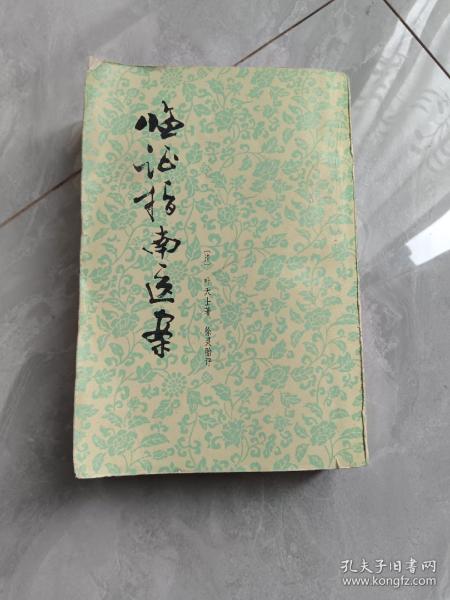 临证指南医案
〔清〕叶天士著 徐灵胎评
孔夫子旧书网
www.kongfz.com